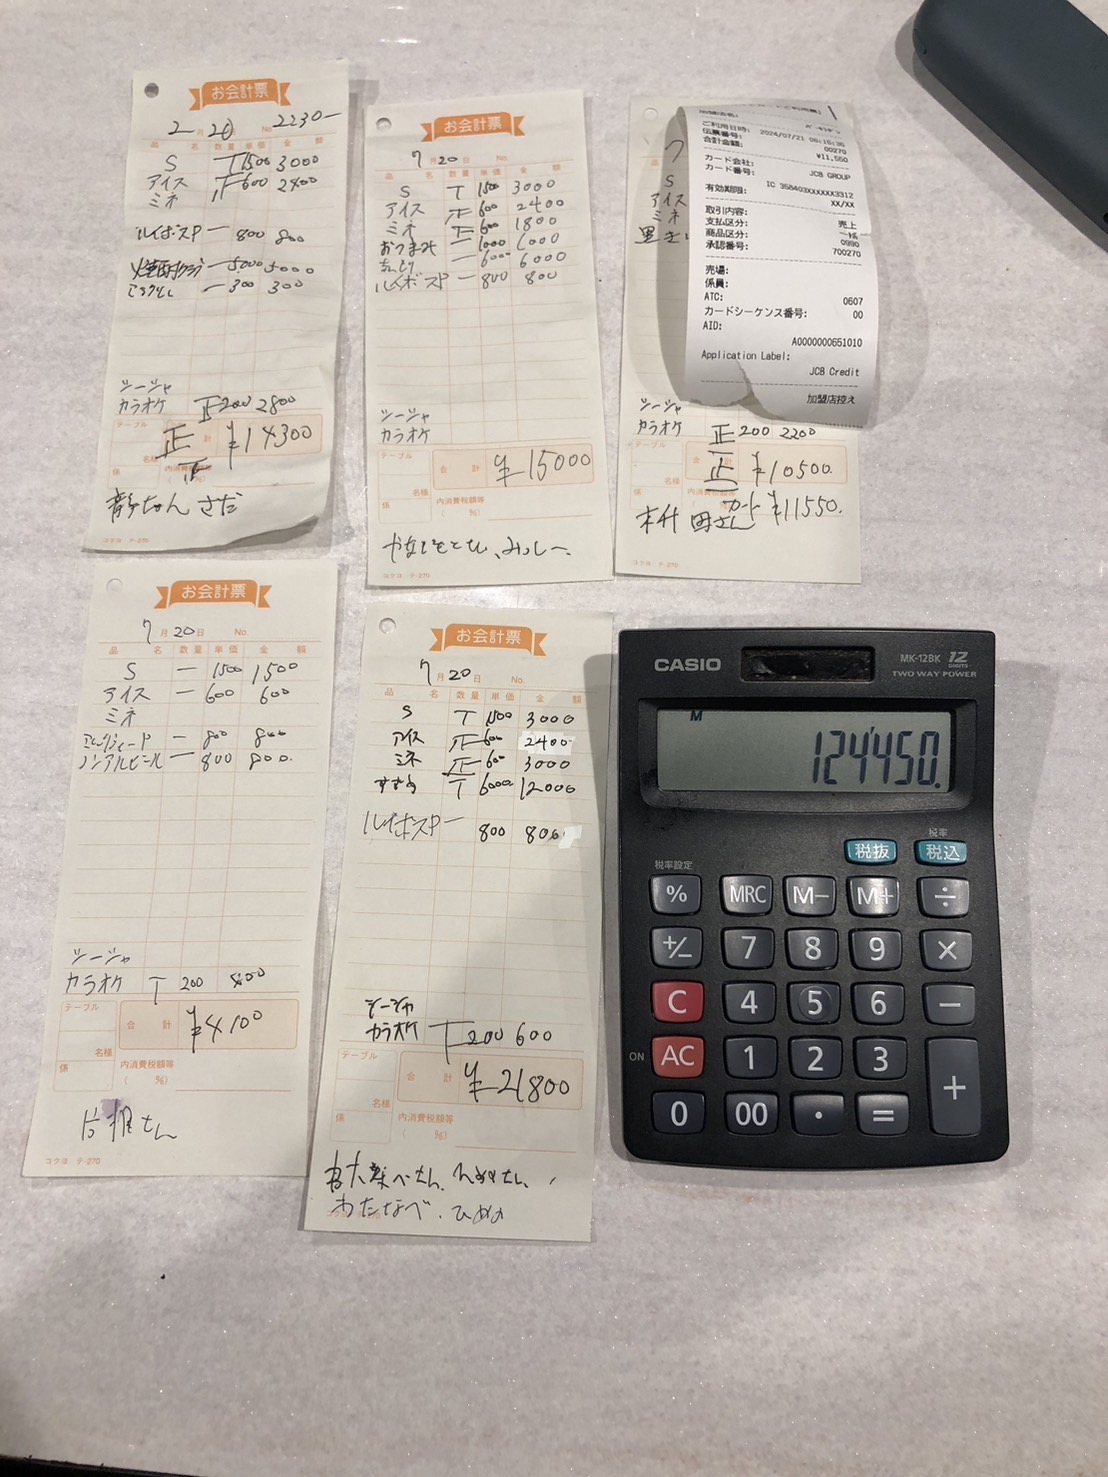 お会計票
2月20日 No. 2230-
品名 数量 単価 金額
S T 1500 3000
アイス 正 600 2400
ミネ
ルイボスP 一 800 800
一 5000 5000
一 300 300
シージャ
カラオケ 正 200 2800
テーブル 合計 ¥14300
係 名様 内消費税額等
( %)
コクヨ テ-270
お会計票
7月20日 No.
品名 数量 単価 金額
S T 1500 3000
アイス 正 600 2400
ミネ 下 600 1800
おつまみ 一 1000 1000
一 6000 6000
ルイボスP 一 800 800
シージャ
カラオケ
テーブル 合計 ¥15000
係 名様 内消費税額等
( %)
コクヨ テ-270
ご利用日時: 2024/07/21
伝票番号: 00270
合計金額: ¥11,550
カード会社: JCB GROUP
カード番号:
IC 358403XXXXXX3312
有効期限: XX/XX
取引内容: 売上
支払区分: 一括
商品区分: 0990
承認番号: 700270
売場:
係員:
ATC: 0607
カードシーケンス番号: 00
AID:
A0000000651010
Application Label:
JCB Credit
加盟店控え
7
S
アイス
ミネ
シージャ
カラオケ 正 200 2200
正 ¥10500.
カード ¥11550.
コクヨ テ-270
お会計票
7月20日 No.
品名 数量 単価 金額
S 一 1500 1500
アイス 一 600 600
ミネ
一 800 800
ノンアルビール 一 800 800
シージャ
カラオケ T 200 400
テーブル 合計 ¥4100
係 名様 内消費税額等
( %)
コクヨ テ-270
お会計票
7月20日 No.
品名 数量 単価 金額
S T 1500 3000
アイス 正 600 2400
ミネ 正 600 3000
T 6000 12000
ルイボスP 一 800 800
シージャ
カラオケ 下 200 600
テーブル 合計 ¥21800
係 名様 内消費税額等
( %)
わたなべ、ひめの
CASIO
MK-12BK 12 DIGITS
TWO WAY POWER
M
124'450.
税率
税抜 税込
税率設定
% MRC M− M+ ÷
+/− 7 8 9 ×
C 4 5 6 −
ON AC 1 2 3 +
0 00 · =